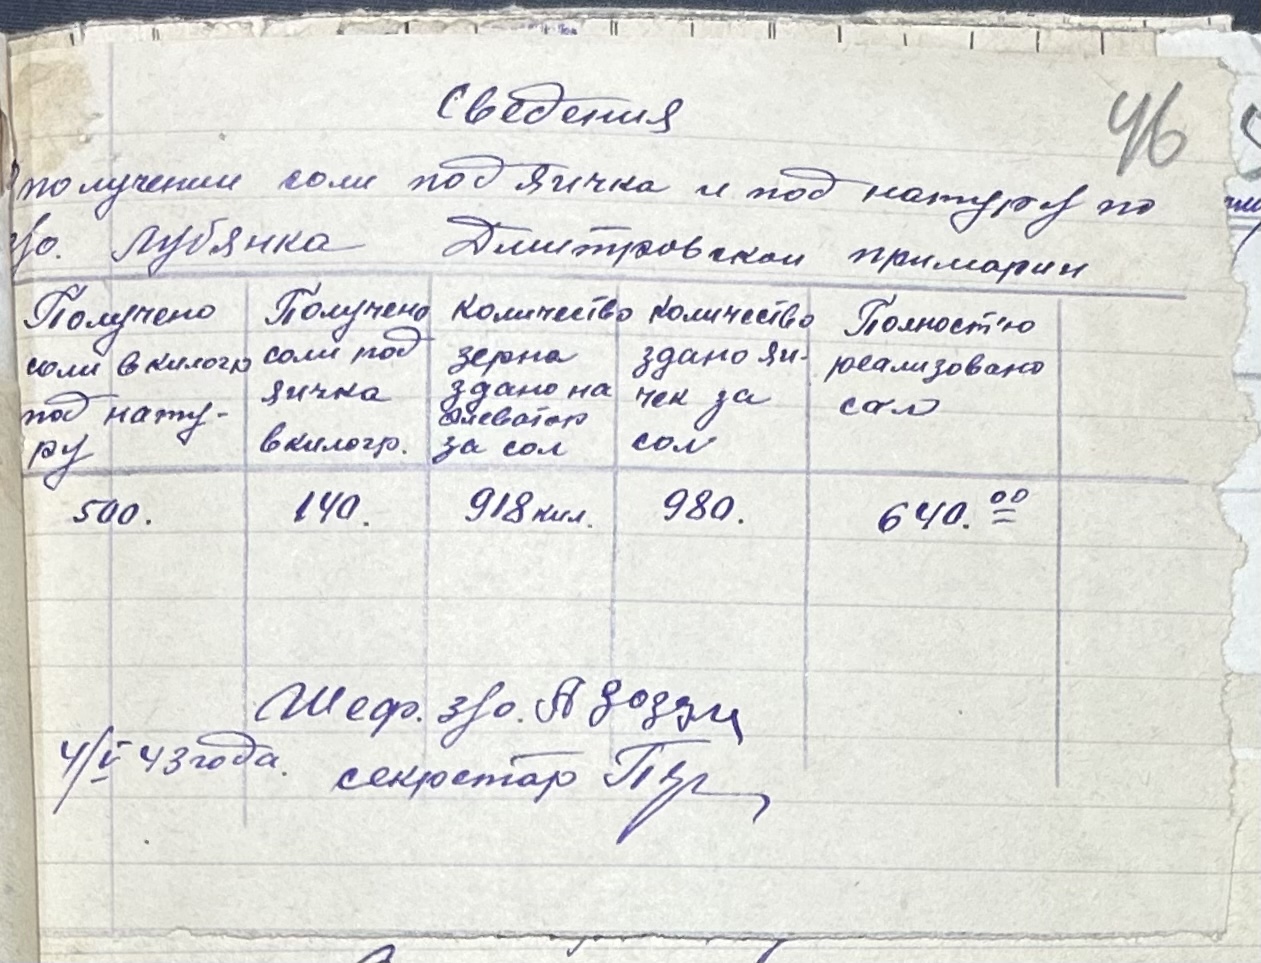 Сведения
46
получении соли под яичка и под натуру по
з/о. Лубянка Дмитровской примарии
Получено соли в килогр под нату-ру
Получено соли под яичка в килогр.
Количество зерна здано на елеватор за сол
Количество здано яи-чек за сол
Полност'ю реализовано сол
500. 140. 918 кил. 980. 640.00
Шеф. з/о.
4/V 43 года. секретар